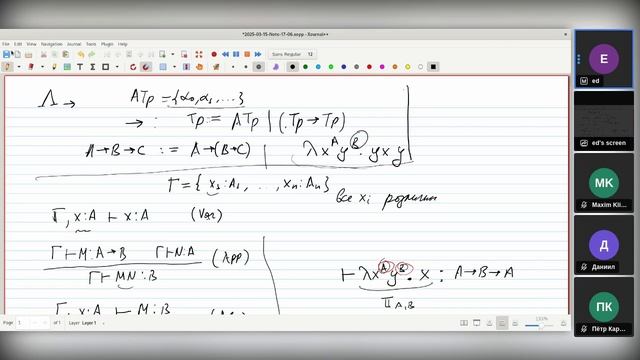 *2025-03-15-Note-17-06.xopp - Xournal++
File Edit View Navigation Journal Tools Plugin Help
Sans Regular 12
Λ→ ATp = {α₀, α₁, ...}
→ : Tp := ATp | (Tp → Tp)
A→B→C := A→(B→C) | λx^A y^B . y x y
Γ = { x₁:A₁, ..., xₙ:Aₙ } все xᵢ различны
Γ, x:A ⊢ x:A (Var)
Γ⊢M:A→B Γ⊢N:A
Γ⊢MN:B (App)
⊢ λx^A y^B . x : A→B→A
Π A,B
Γ, x:A ⊢ M:B
Page 1 of 1 Layer: Layer 1
E
ed
ed's screen
MK
Maxim Kli...
Д
Даниил
ПК
Пётр Кар...